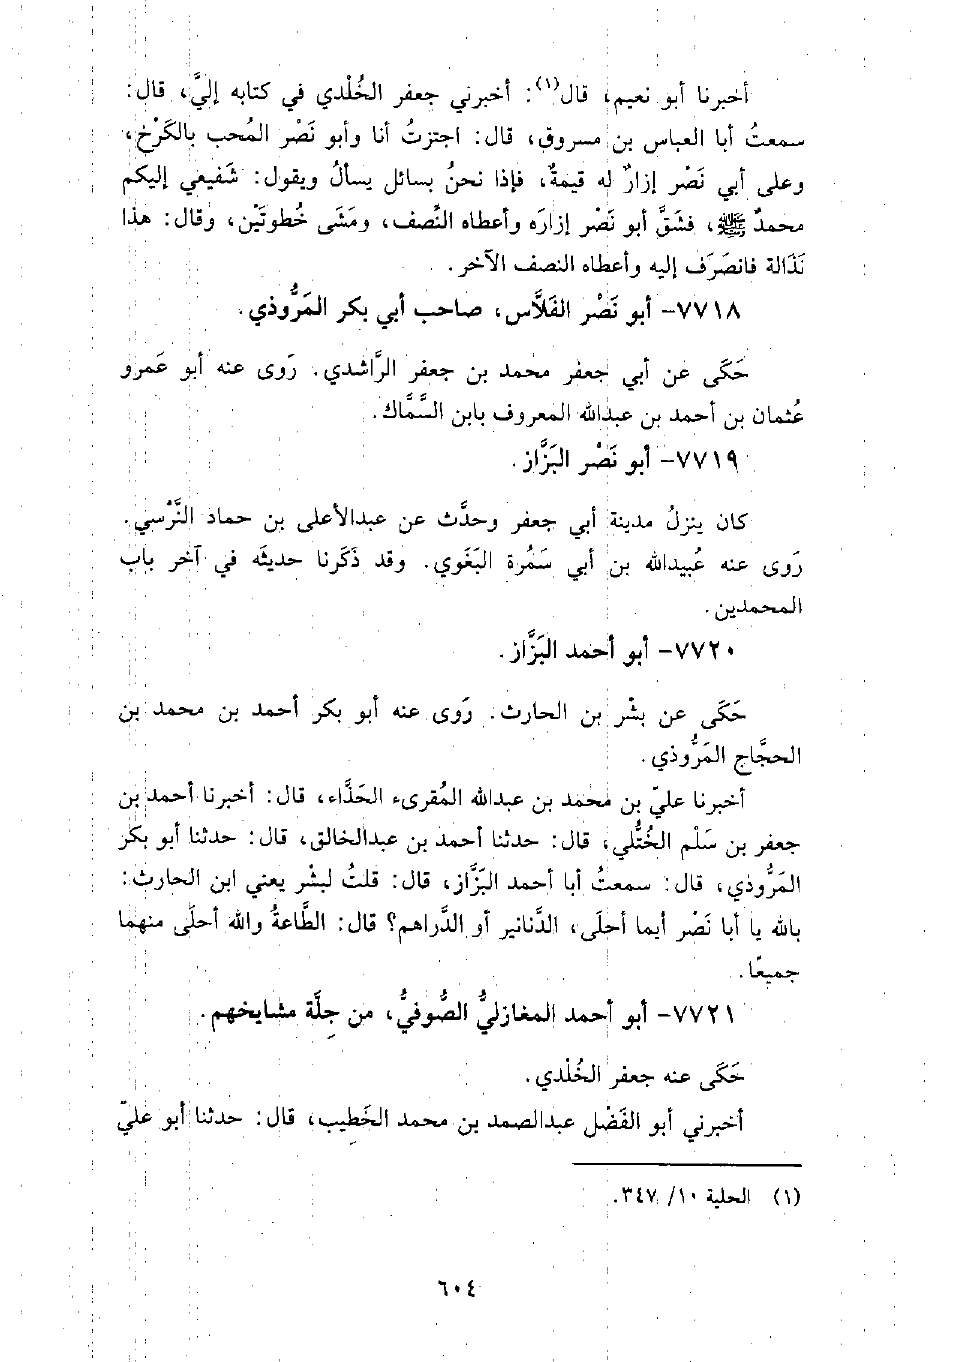 أخبرنا أبو نعيم، قال(١): أخبرني جعفر الخُلْدي في كتابه إليَّ، قال:
سمعتُ أبا العباس بن مسروق، قال: اجتزتُ أنا وأبو نَصْر المُحب بالكَرْخ،
وعلى أبي نَصْر إزارٌ له قيمةٌ، فإذا نحنُ بسائل يسألُ ويقول: شَفيعي إليكم
محمدٌ ﷺ، فشَقَّ أبو نَصْر إزارَه وأعطاه النِّصف، ومَشَى خُطوتَيْن، وقال: هذا
نَذَالة فانصَرَف إليه وأعطاه النصف الآخر.
٧٧١٨- أبو نَصْر الفَلَّاس، صاحب أبي بكر المَرُّوذي.
حَكَى عن أبي جعفر محمد بن جعفر الرَّاشدي. رَوى عنه أبو عَمرو
عُثمان بن أحمد بن عبدالله المعروف بابن السَّمَّاك.
٧٧١٩- أبو نَصْر البَزَّاز.
كان ينزلُ مدينة أبي جعفر وحدَّث عن عبدالأعلى بن حماد النَّرْسي.
رَوى عنه عُبيدالله بن أبي سَمُرة البَغَوي. وقد ذَكَرنا حديثَه في آخر باب
المحمدين.
٧٧٢٠- أبو أحمد البَزَّاز.
حَكَى عن بشْر بن الحارث. رَوى عنه أبو بكر أحمد بن محمد بن
الحجَّاج المَرُّوذي.
أخبرنا عليّ بن محمد بن عبدالله المُقرىء الحَذَّاء، قال: أخبرنا أحمد بن
جعفر بن سَلْم الخُتُّلي، قال: حدثنا أحمد بن عبدالخالق، قال: حدثنا أبو بكر
المَرُّوذي، قال: سمعتُ أبا أحمد البَزَّاز، قال: قلتُ لبشْر يعني ابن الحارث:
بالله يا أبا نَصْر أيما أحلَى، الدَّنانير أو الدَّراهم؟ قال: الطَّاعةُ والله أحلَى منهما
جميعًا.
٧٧٢١- أبو أحمد المغازليُّ الصُّوفيُّ، من جِلَّة مشايخهم.
حَكَى عنه جعفر الخُلْدي.
أخبرني أبو الفَضْل عبدالصمد بن محمد الخَطِيب، قال: حدثنا أبو عليّ
(١) الحلية ١٠/ ٣٤٧.
٦٠٤